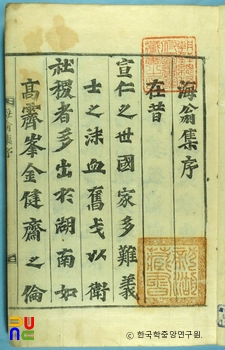 海翁集序
在昔
宣仁之世國家多難義
士之沫血奮戈以衛
社稷者多出於湖南如
高霽峯金健齋之倫
ⓒ 한국학중앙연구원.